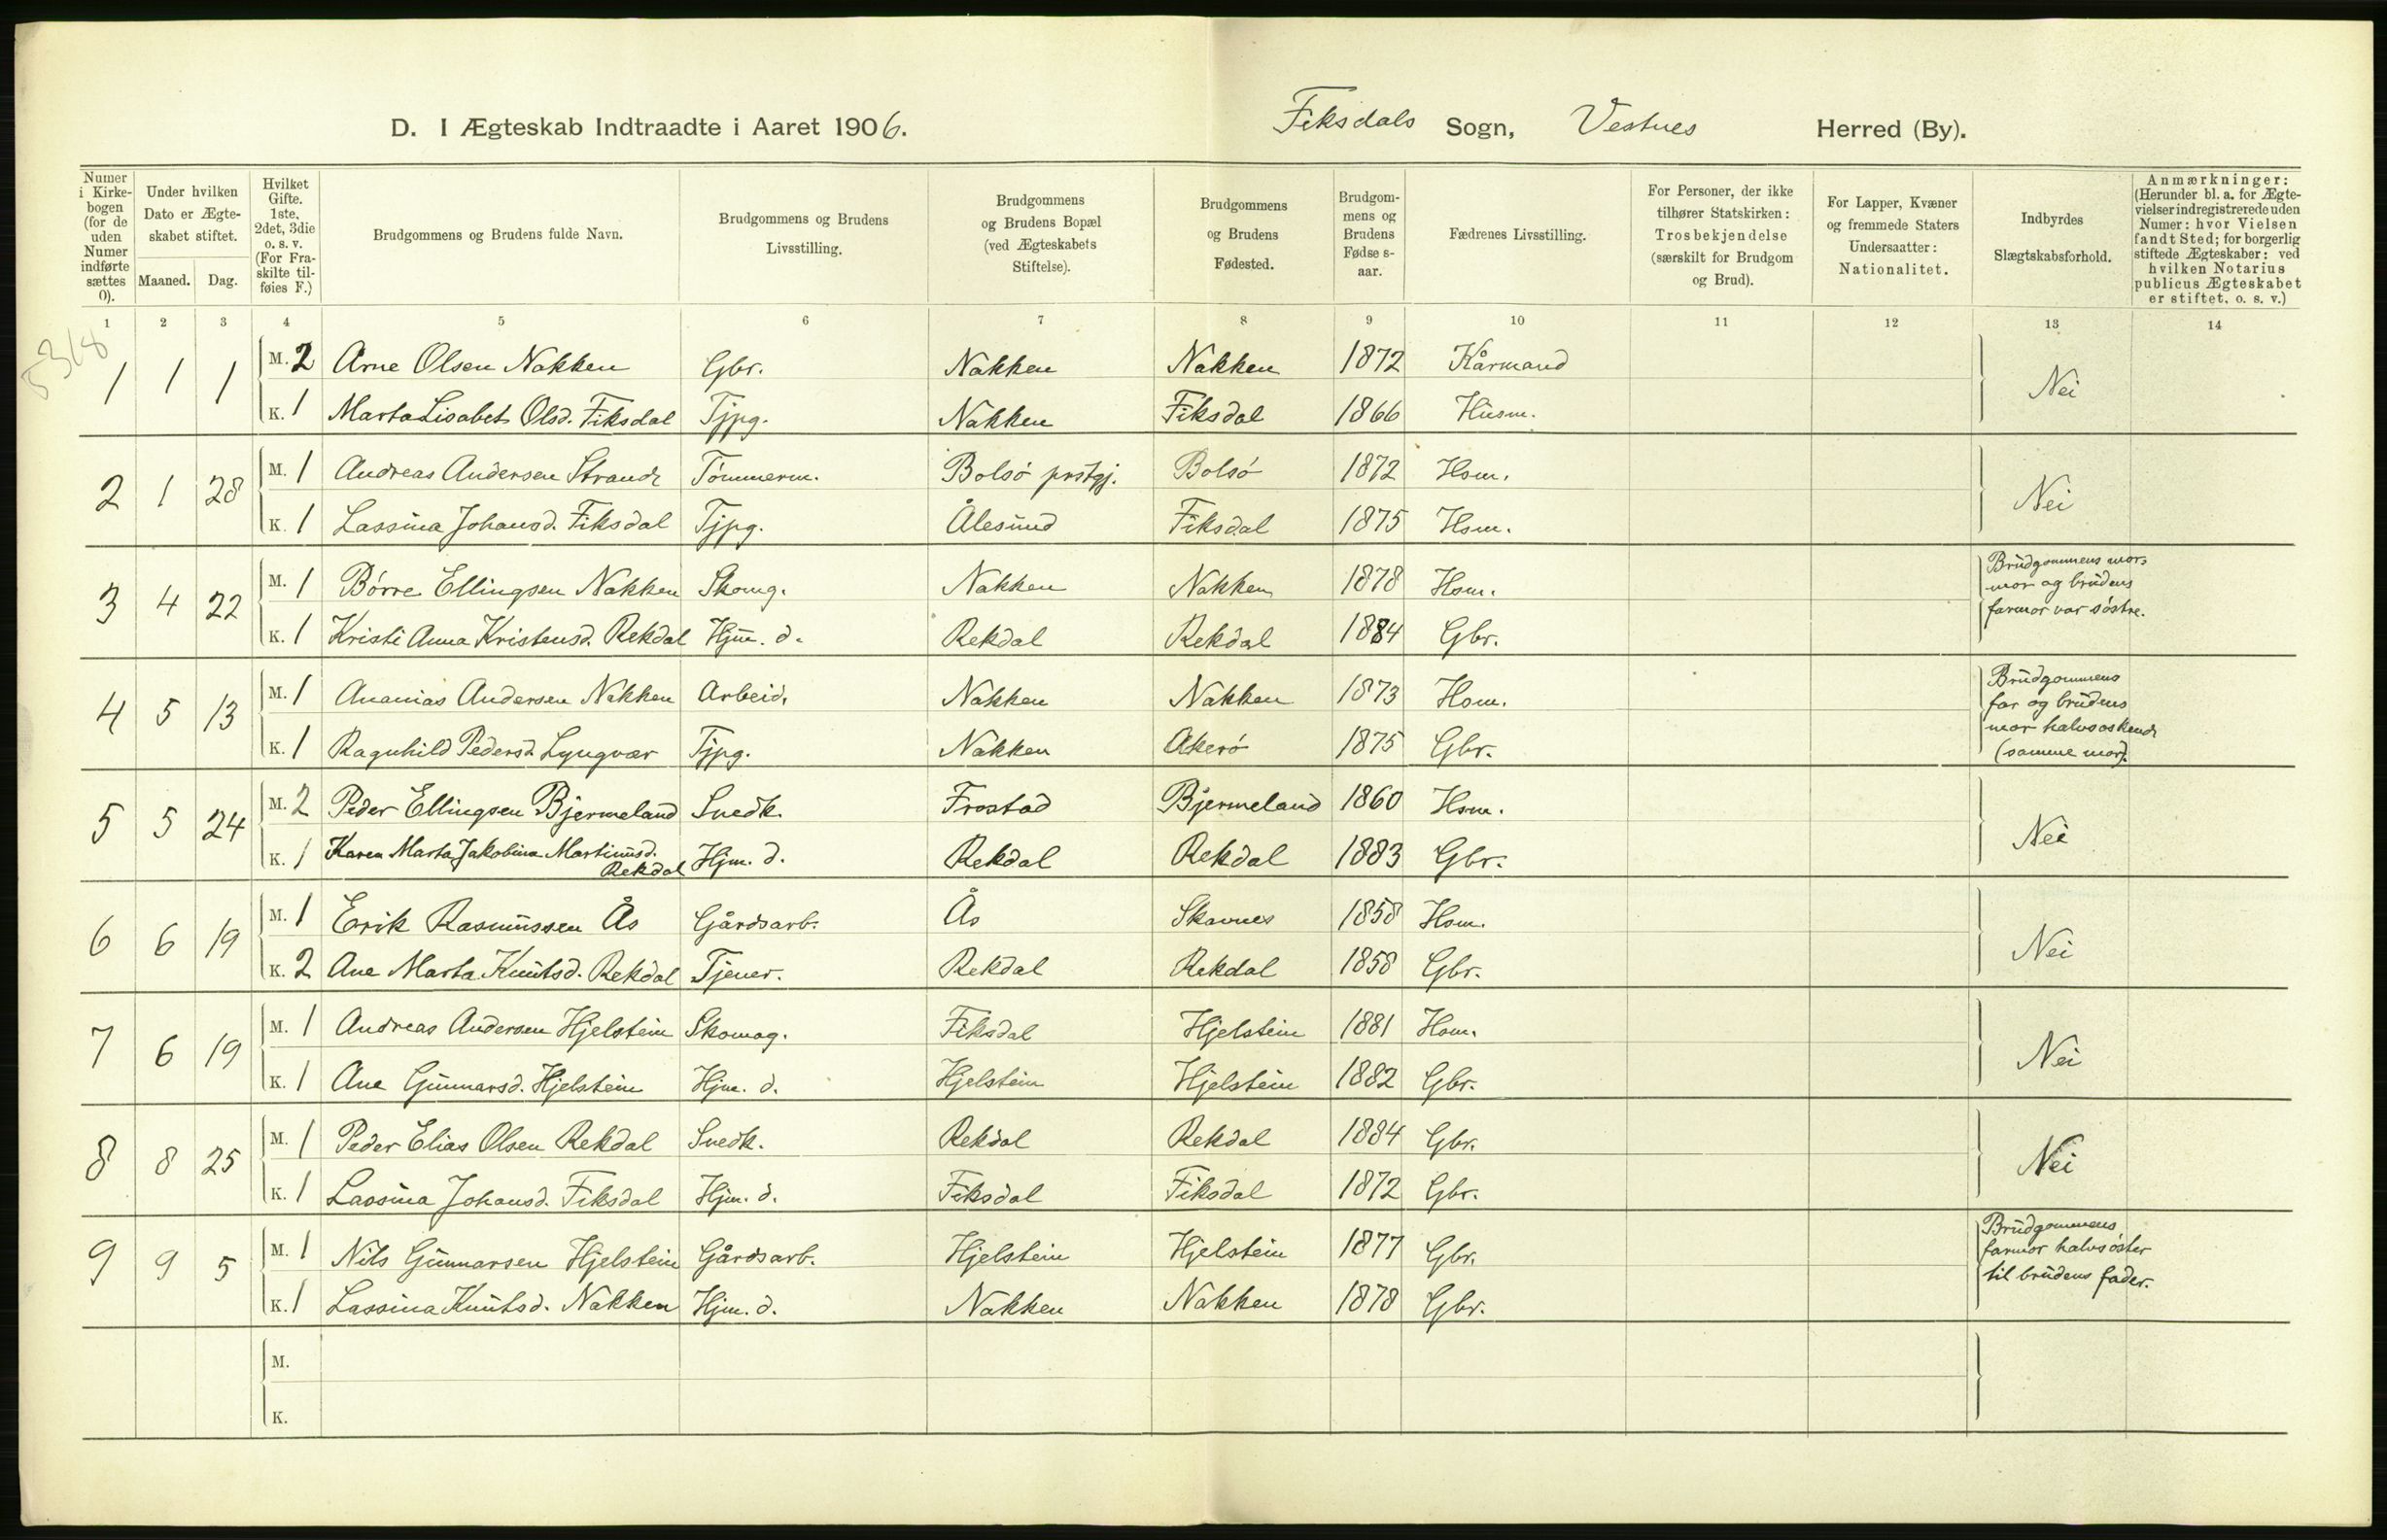 D. I Ægteskab Indtraadte i Aaret 1906. Fiksdals Sogn, Vestnes Herred (By).
Numer i Kirkebogen (for de uden Numer indførte sættes 0).
Under hvilken Dato er Ægteskabet stiftet.
Maaned. Dag.
Hvilket Gifte. 1ste, 2det, 3die o. s. v. (For Fraskilte tilføies F.)
Brudgommens og Brudens fulde Navn.
Brudgommens og Brudens Livsstilling.
Brudgommens og Brudens Bopæl (ved Ægteskabets Stiftelse).
Brudgommens og Brudens Fødested.
Brudgommens og Brudens Fødselsaar.
Fædrenes Livsstilling.
For Personer, der ikke tilhører Statskirken: Trosbekjendelse (særskilt for Brudgom og Brud).
For Lapper, Kvæner og fremmede Staters Undersaatter: Nationalitet.
Indbyrdes Slægtskabsforhold.
Anmærkninger: (Herunder bl. a. for Ægtevielser indregistrerede uden Numer: hvor Vielsen fandt Sted; for borgerlig stiftede Ægteskaber: ved hvilken Notarius publicus Ægteskabet er stiftet, o. s. v.)
1 2 3 4 5 6 7 8 9 10 11 12 13 14
5318
1 1 1 M. 2 Arne Olsen Nakken Gbr. Nakken Nakken 1872 Kårmand Nei
K. 1 Marta Lisabet Olsd. Fiksdal Tjpg. Nakken Fiksdal 1866 Husm.
2 1 28 M. 1 Andreas Andersen Strande Tömmerm. Bolsö prstgj. Bolsö 1872 Hsm. Nei
K. 1 Lassina Johansd. Fiksdal Tjpg. Ålesund Fiksdal 1875 Hsm.
3 4 22 M. 1 Börre Ellingsen Nakken Skomg. Nakken Nakken 1878 Hsm. Brudgommens mormor og brudens farmor var söstre.
K. 1 Kristi Anna Kristensd. Rekdal Hjm. d. Rekdal Rekdal 1884 Gbr.
4 5 13 M. 1 Ananias Andersen Nakken Arbeid. Nakken Nakken 1873 Hsm. Brudgommens far og brudens mor halvsöskende (samme mor).
K. 1 Ragnhild Pedersd. Lyngvær Tjpg. Nakken Akerö 1875 Gbr.
5 5 24 M. 2 Peder Ellingsen Bjermeland Snedk. Frostad Bjermeland 1860 Hsm. Nei
K. 1 Karen Marta Jakobina Martinusd. Rekdal Hjm. d. Rekdal Rekdal 1883 Gbr.
6 6 19 M. 1 Erik Rasmussen Ås Gårdsarb. Ås Skavnes 1858 Hsm. Nei
K. 2 Ane Marta Knutsd. Rekdal Tjener. Rekdal Rekdal 1858 Gbr.
7 6 19 M. 1 Andreas Andersen Hjelstein Skomag. Fiksdal Hjelstein 1881 Hsm. Nei
K. 1 Ane Gunnarsd. Hjelstein Hjm. d. Hjelstein Hjelstein 1882 Gbr.
8 8 25 M. 1 Peder Elias Olsen Rekdal Snedk. Rekdal Rekdal 1884 Gbr. Nei
K. 1 Lassina Johansd. Fiksdal Hjm. d. Fiksdal Fiksdal 1872 Gbr.
9 9 5 M. 1 Nils Gunnarsen Hjelstein Gårdsarb. Hjelstein Hjelstein 1877 Gbr. Brudgommens farmor halvsöster til brudens fader.
K. 1 Lassina Knutsd. Nakken Hjm. d. Nakken Nakken 1878 Gbr.
M.
K.